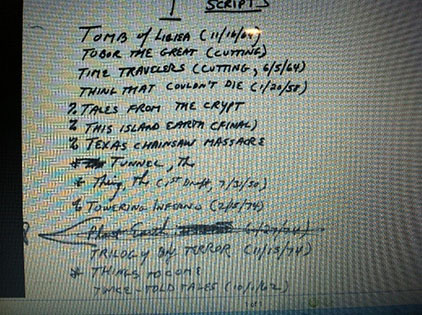 I SCRIPTS
TOMB of LIGIEA (11/16/64)
TOBOR THE GREAT (CUTTING)
TIME TRAVELERS (CUTTING, 6/5/64)
THING THAT COULDN'T DIE (1/20/58)
% TALES FROM THE CRYPT
% THIS ISLAND EARTH (FINAL)
% TEXAS CHAINSAW MASSACRE
* TUNNEL, The
* Thing, The (1st Draft, 7/31/50)
% TOWERING INFERNO (2/5/74)
TRILOGY OF TERROR (11/15/74)
* THINGS TO COME
TWICE-TOLD TALES (10/1/62)